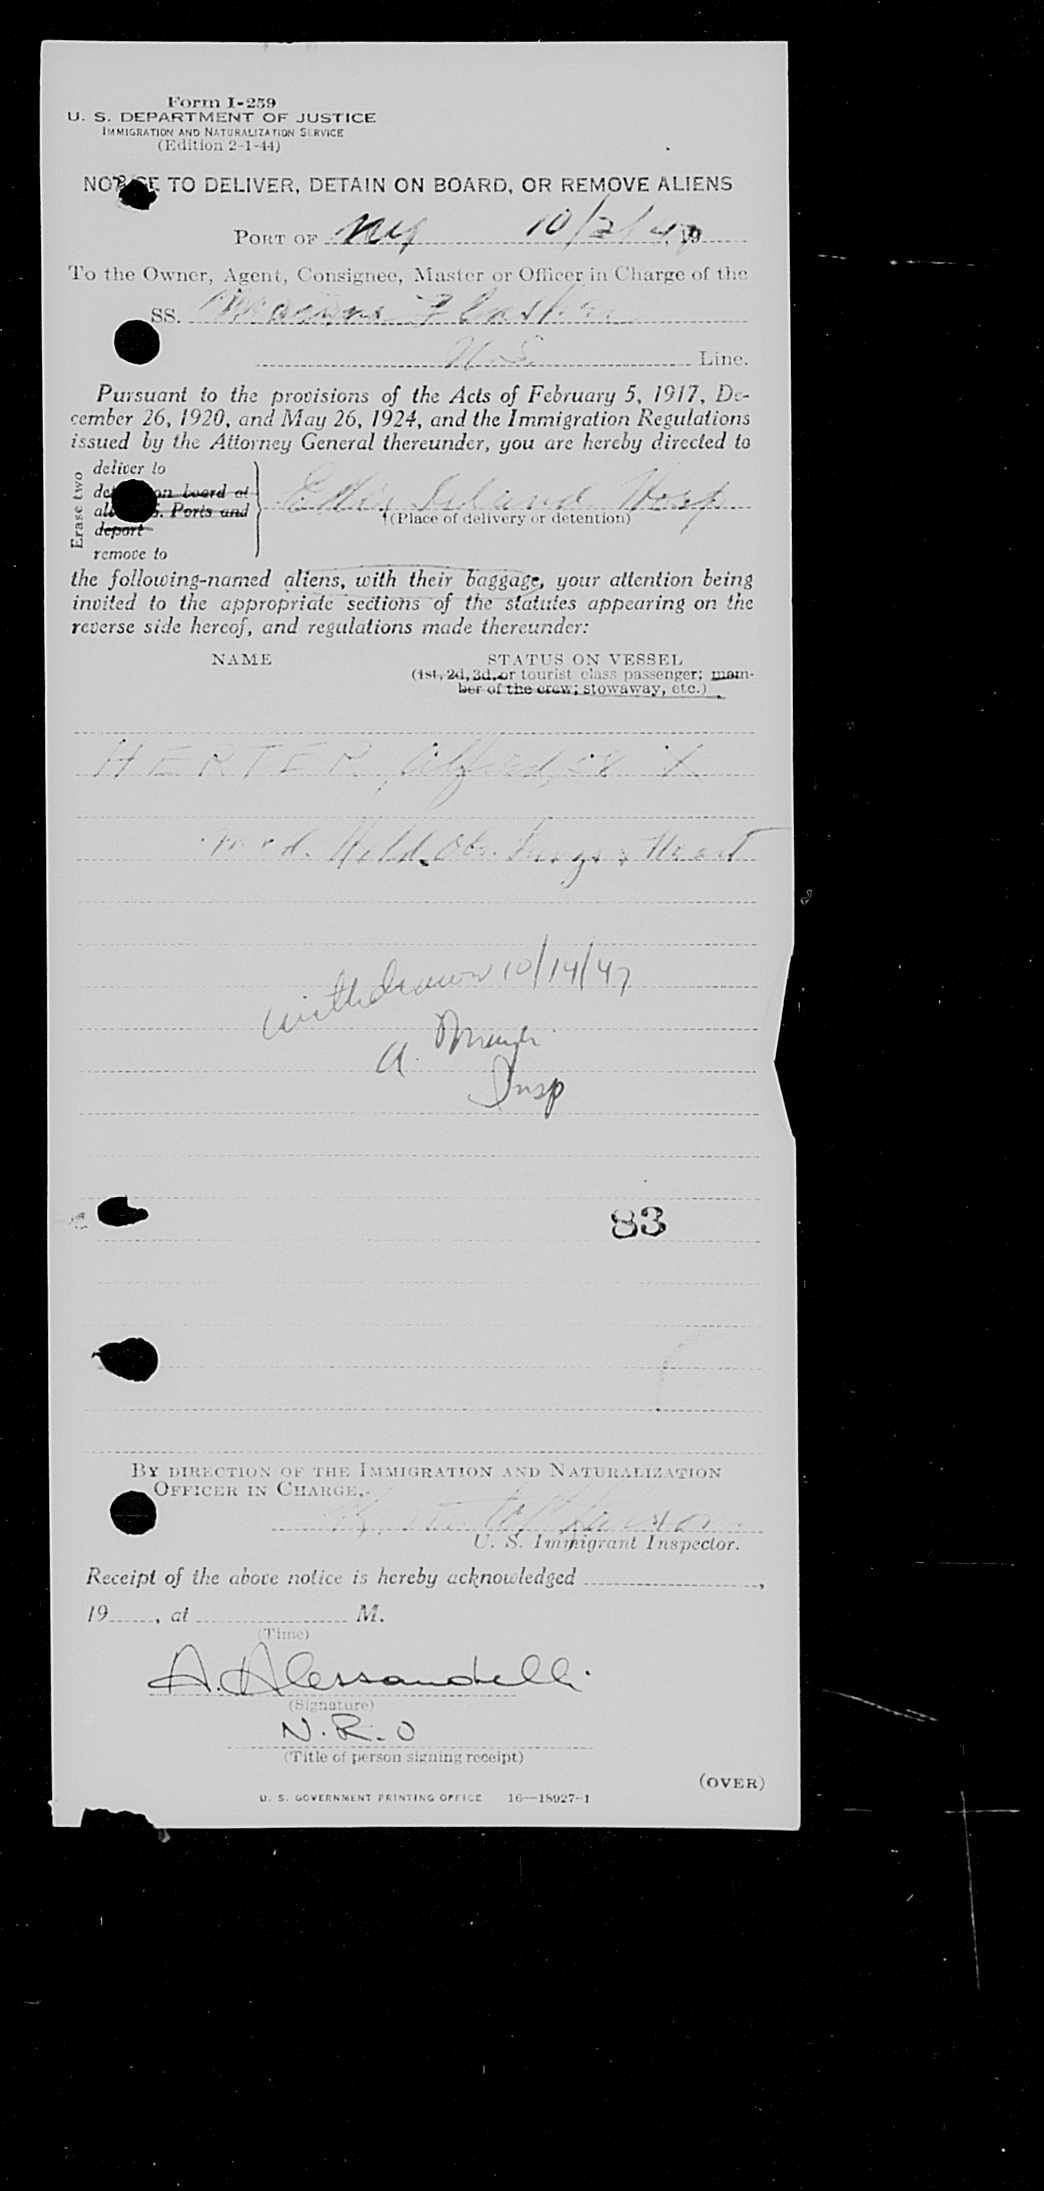 Form I-259
U. S. DEPARTMENT OF JUSTICE
IMMIGRATION AND NATURALIZATION SERVICE
(Edition 2-1-44)
NOTICE TO DELIVER, DETAIN ON BOARD, OR REMOVE ALIENS
PORT OF NY 10/2/47, 19
To the Owner, Agent, Consignee, Master or Officer in Charge of the
SS. Marine Flasher
U.S. Line.
Pursuant to the provisions of the Acts of February 5, 1917, De-
cember 26, 1920, and May 26, 1924, and the Immigration Regulations
issued by the Attorney General thereunder, you are hereby directed to
Erase two
deliver to
on board at
S. Ports and
deport
remove to
Ellis Island Hosp
(Place of delivery or detention)
the following-named aliens, with their baggage, your attention being
invited to the appropriate sections of the statutes appearing on the
reverse side hereof, and regulations made thereunder:
NAME STATUS ON VESSEL
(1st, 2d, 3d, or tourist class passenger; mem-
ber of the crew; stowaway, etc.)
HERTER, Alfred, 58
med. Held. Obs. Lungs & Heart
withdrawn 10/14/47
A.
Insp
83
BY DIRECTION OF THE IMMIGRATION AND NATURALIZATION
OFFICER IN CHARGE,
U. S. Immigrant Inspector.
Receipt of the above notice is hereby acknowledged ,
19 , at M.
(Time)
A. Alessandelli
(Signature)
N.R.O
(Title of person signing receipt)
(OVER)
U. S. GOVERNMENT PRINTING OFFICE 16—18927-1